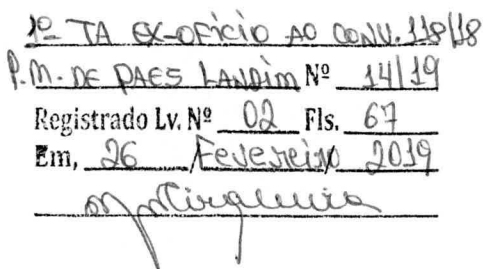 1º TA EX-OFÍCIO AO CONV. 118/18
P.M. DE PAES LANDIM Nº 14/19
Registrado Lv. Nº 02 Fls. 67
Em, 26 / Fevereiro / 2019